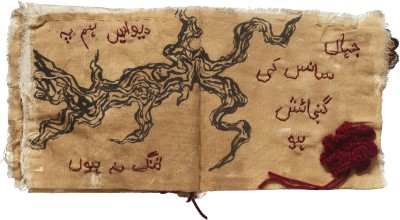 جہاں
سانس کی
گنجائش
ہو
دیواریں ہم پہ
تنگ نہ ہوں